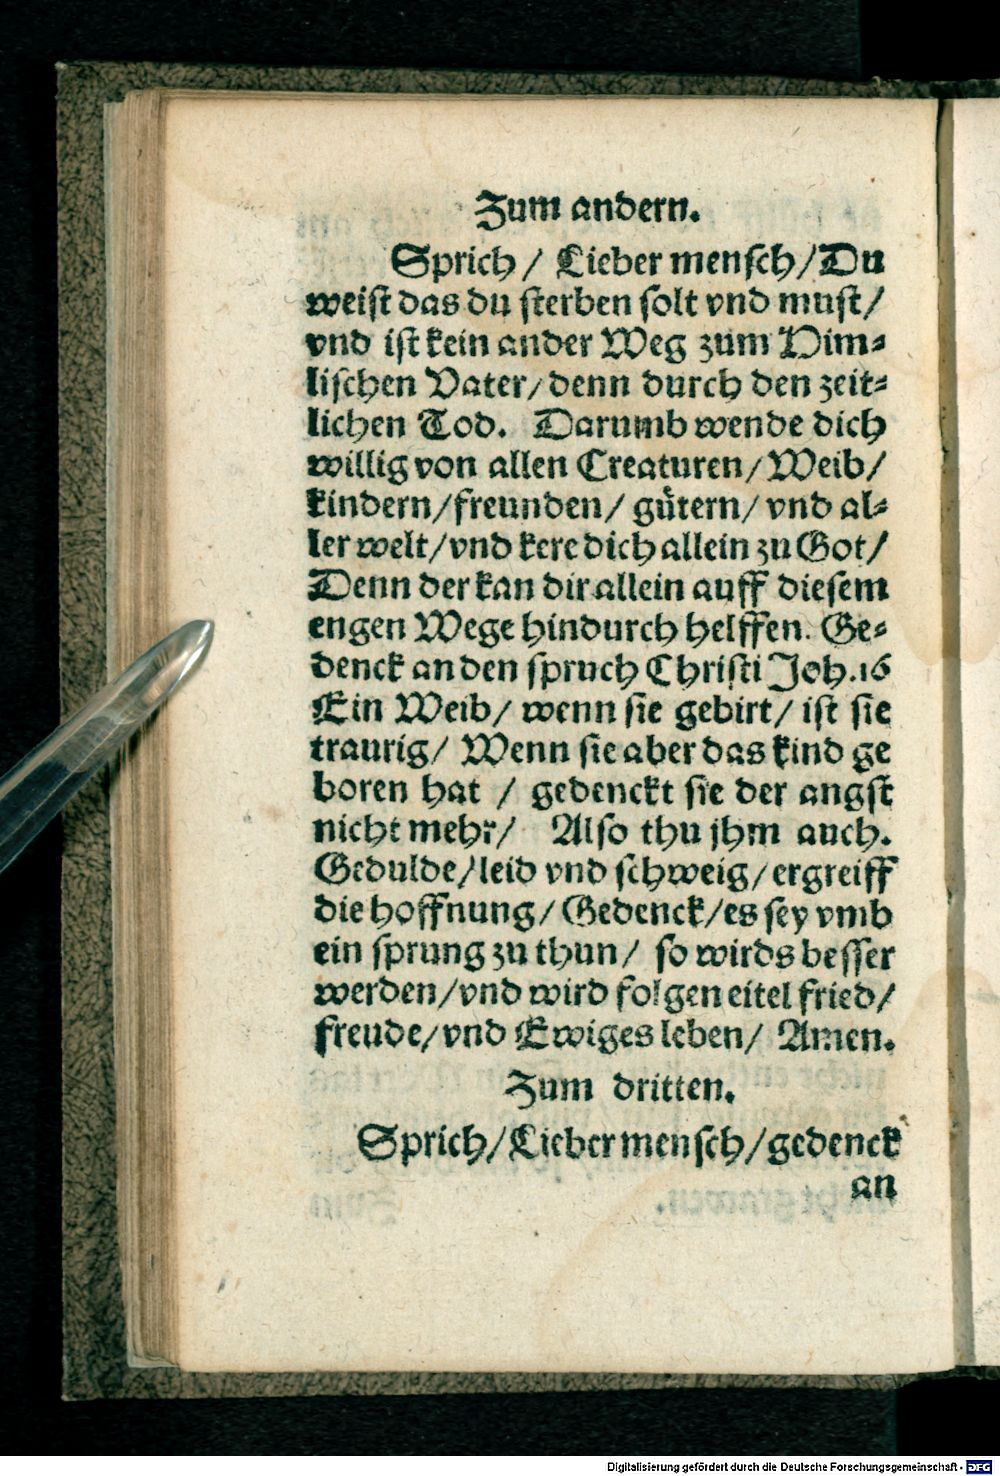 Zum andern.
Sprich/ Lieber mensch/Du
weist das du sterben solt vnd must/
vnd ist kein ander Weg zum Him⸗
lischen Vater/denn durch den zeit⸗
lichen Tod. Darumb wende dich
willig von allen Creaturen/Weib/
kindern/freunden/ guͤtern/ vnd al⸗
ler welt/vnd kere dich allein zu Got/
Denn der kan dir allein auff diesem
engen Wege hindurch helffen. Ge⸗
denck an den spruch Christi Joh.16
Ein Weib/ wenn sie gebirt/ ist sie
traurig/ Wenn sie aber das kind ge
boren hat / gedenckt sie der angst
nicht mehr/ Also thu jhm auch.
Gedulde/leid vnd schweig/ergreiff
die hoffnung/Gedenck/es sey vmb
ein sprung zu thun/ so wirds besser
werden/vnd wird folgen eitel fried/
freude/vnd Ewiges leben/ Amen.
Zum dritten.
Sprich/Lieber mensch/gedenck
an
Digitalisierung gefördert durch die Deutsche Forschungsgemeinschaft - DFG